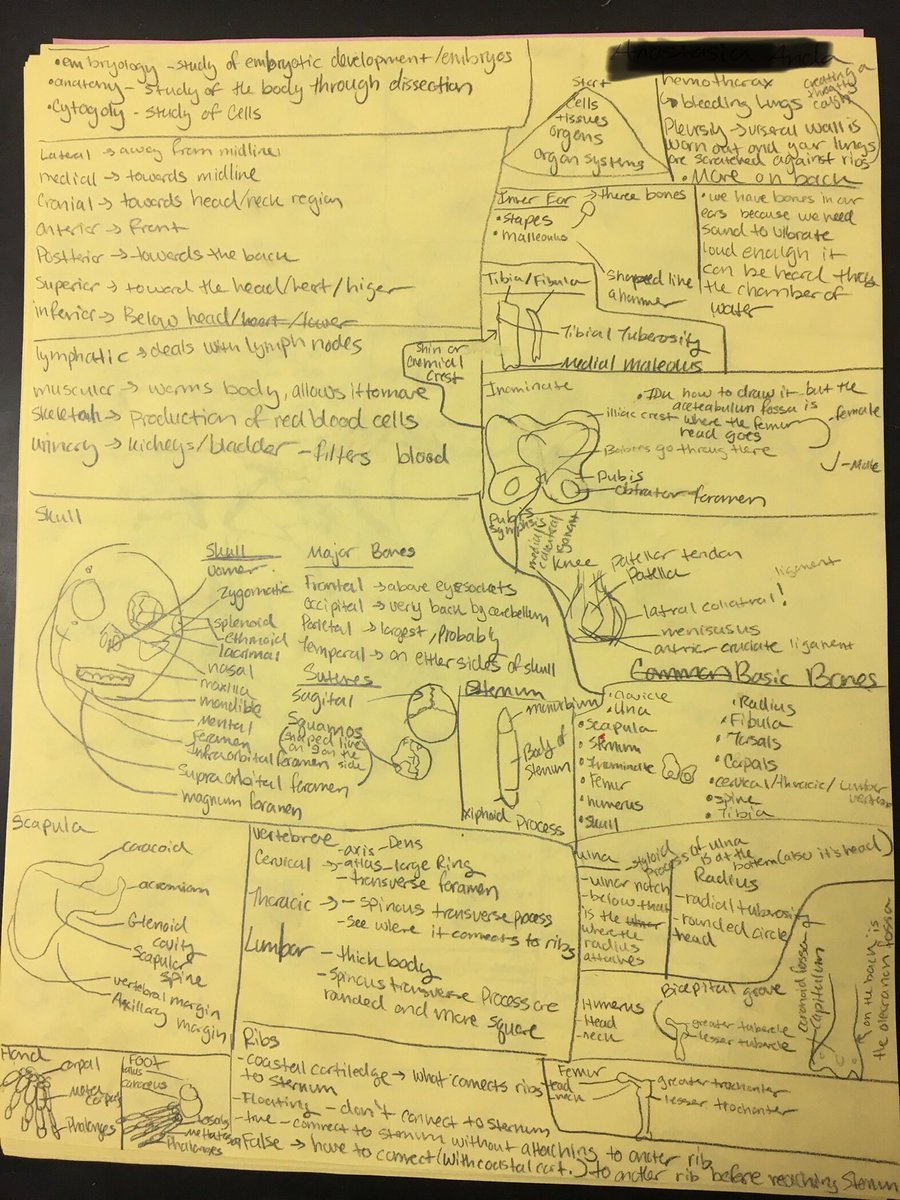 •embryology - study of embryotic development/embryos
•anatomy - study of the body through dissection
•Cytogoly - study of cells
Lateral → away from midline
medial → towards midline
Cranial → towards head/neck region
anterior → Front
Posterior → towards the back
Superior → toward the head/heart/higer
inferior → Below head/heart/lower
lymphatic → deals with lymph nodes
muscular → warms body, allows it to move
Skeletal → Production of red blood cells
urinary → kidneys/bladder - filters blood
Start
Cells
tissues
organs
organ systems
hemothorax
↳ bleeding lungs
creating a
throaty
cough
Pleurisy → viseral wall is
worn out and your lungs
are scratched against ribs
• More on back
Inner Ear → three bones
• Stapes
• malleolus
shaped like
a hammer
• we have bones in our
ears because we need
sound to vibrate
loud enough it
can be heard thru
the chamber of
water
Tibia/Fibula
Tibial Tuberosity
Medial maleous
Shin or
Crest
Inominate
• Idk how to draw it but the
aceteabulum fossa is
where the femur
head goes
illiac crest
female
Male
Babies go throug there
Pubis
obtrator foramen
Pubis
symphysis
medial
collateral
ligament
Knee
Patellar tendon
Patella
ligament
latral collatral!
meniscus
antrior cruciate ligament
Skull
Skull
vomer
zygomatic
splenoid
ethmoid
lacrimal
nasal
maxilla
mandible
mental
foramen
Infraorbital foramen
Supra orbital foramen
magnum foramen
Major Bones
Frontal → above eyesockets
Occipital → very back by cerebellum
Parietal → largest, Probably
Temporal → on either sides of skull
Sutures
Sagital
Squamos
(shaped like
an 9 on the
side)
Sternum
manubrium
Body of
Sternum
xiphoid process
Common Basic Bones
• Ulna
• Scapula
• Sternum
• Inominate
• Femur
• humerus
• Skull
• Radius
• Fibula
• Tarsals
• Carpals
• cervical/thoracic/Lumbar
vertebrae
• spine
• Tibia
Scapula
caracoid
acromium
Glenoid
cavity
Scapular
spine
vertebral margin
Axillary margin
vertebrae
Cervical → - axis - Dens
- atlas - large Ring
- transverse foramen
Thoracic → - Spinous transverse process
- see where it connects to ribs
Lumbar
- thick body
- Spinous transverse Process are
rounded and more square
ulna
- styloid process of ulna
is at the
bottom (also it's head)
- ulnar notch
- below that
is the
where the
radius
attaches
Radius
- radial tuberosity
- rounded circle
head
Humerus
- Head
- neck
Bicepital grove
greater tubercle
lesser tubercle
coranoid fossa
capitulum
on the back is
the olecranon fossa
Hand
carpal
meta
carpal
Phalanges
Foot
talus
calcaneus
tarsals
metatarsal
Phalanges
Ribs
- coastal cartiledge → what connects ribs
to sternum
- Floating - don't connect to sternum
- true - connect to sternum without attaching to another rib
False → have to connect (with coastal cart.) to another rib before reaching Sternum
Femur
Head
neck
greater trochanter
lesser trochanter